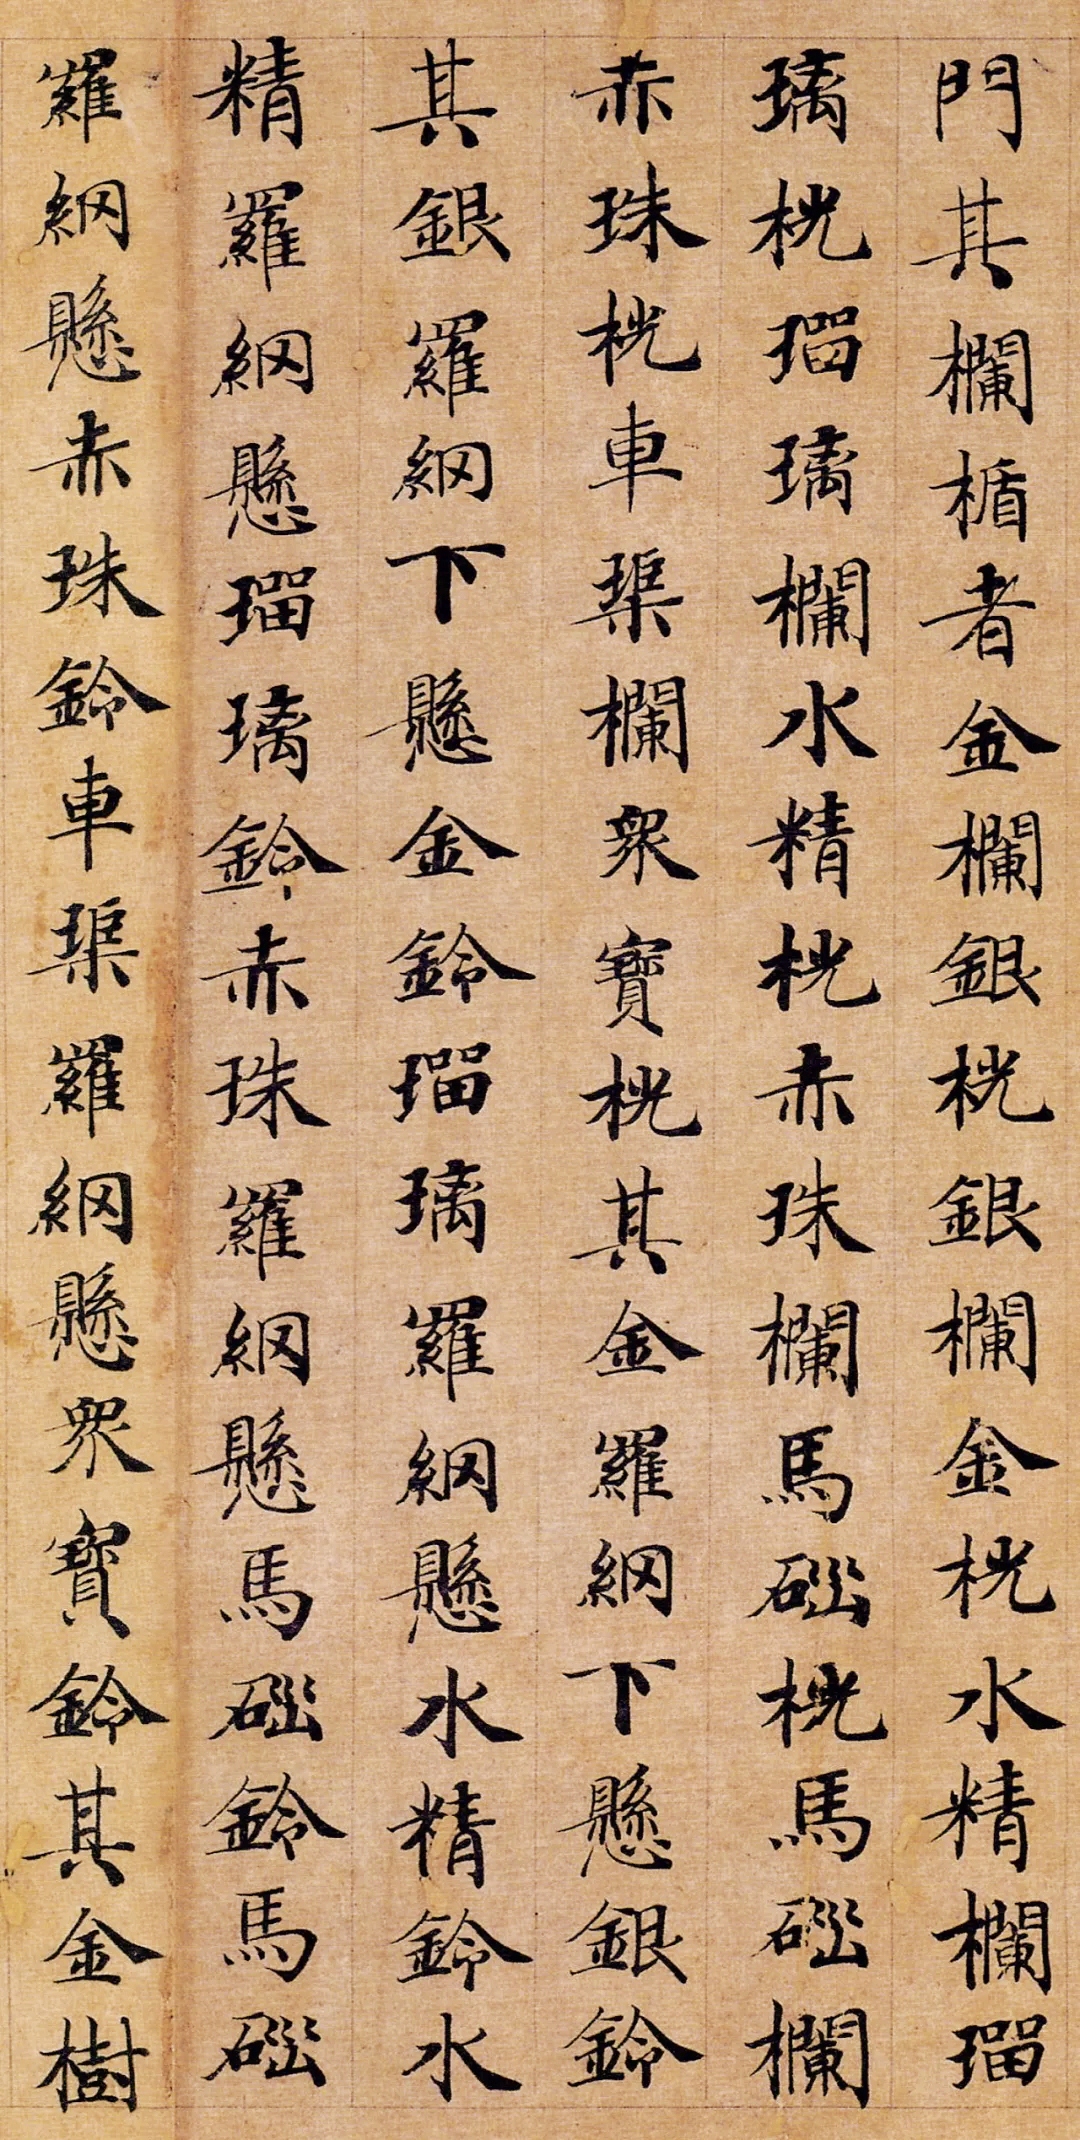 門其欄楯者金欄銀桄銀欄金桄水精欄瑠
璃桄瑠璃欄水精桄赤珠欄馬碯桄馬碯欄
赤珠桄車璖欄衆寶桄其金羅網下懸銀鈴
其銀羅網下懸金鈴瑠璃羅網懸水精鈴水
精羅網懸瑠璃鈴赤珠羅網懸馬碯鈴馬碯
羅網懸赤珠鈴車璖羅網懸衆寶鈴其金樹